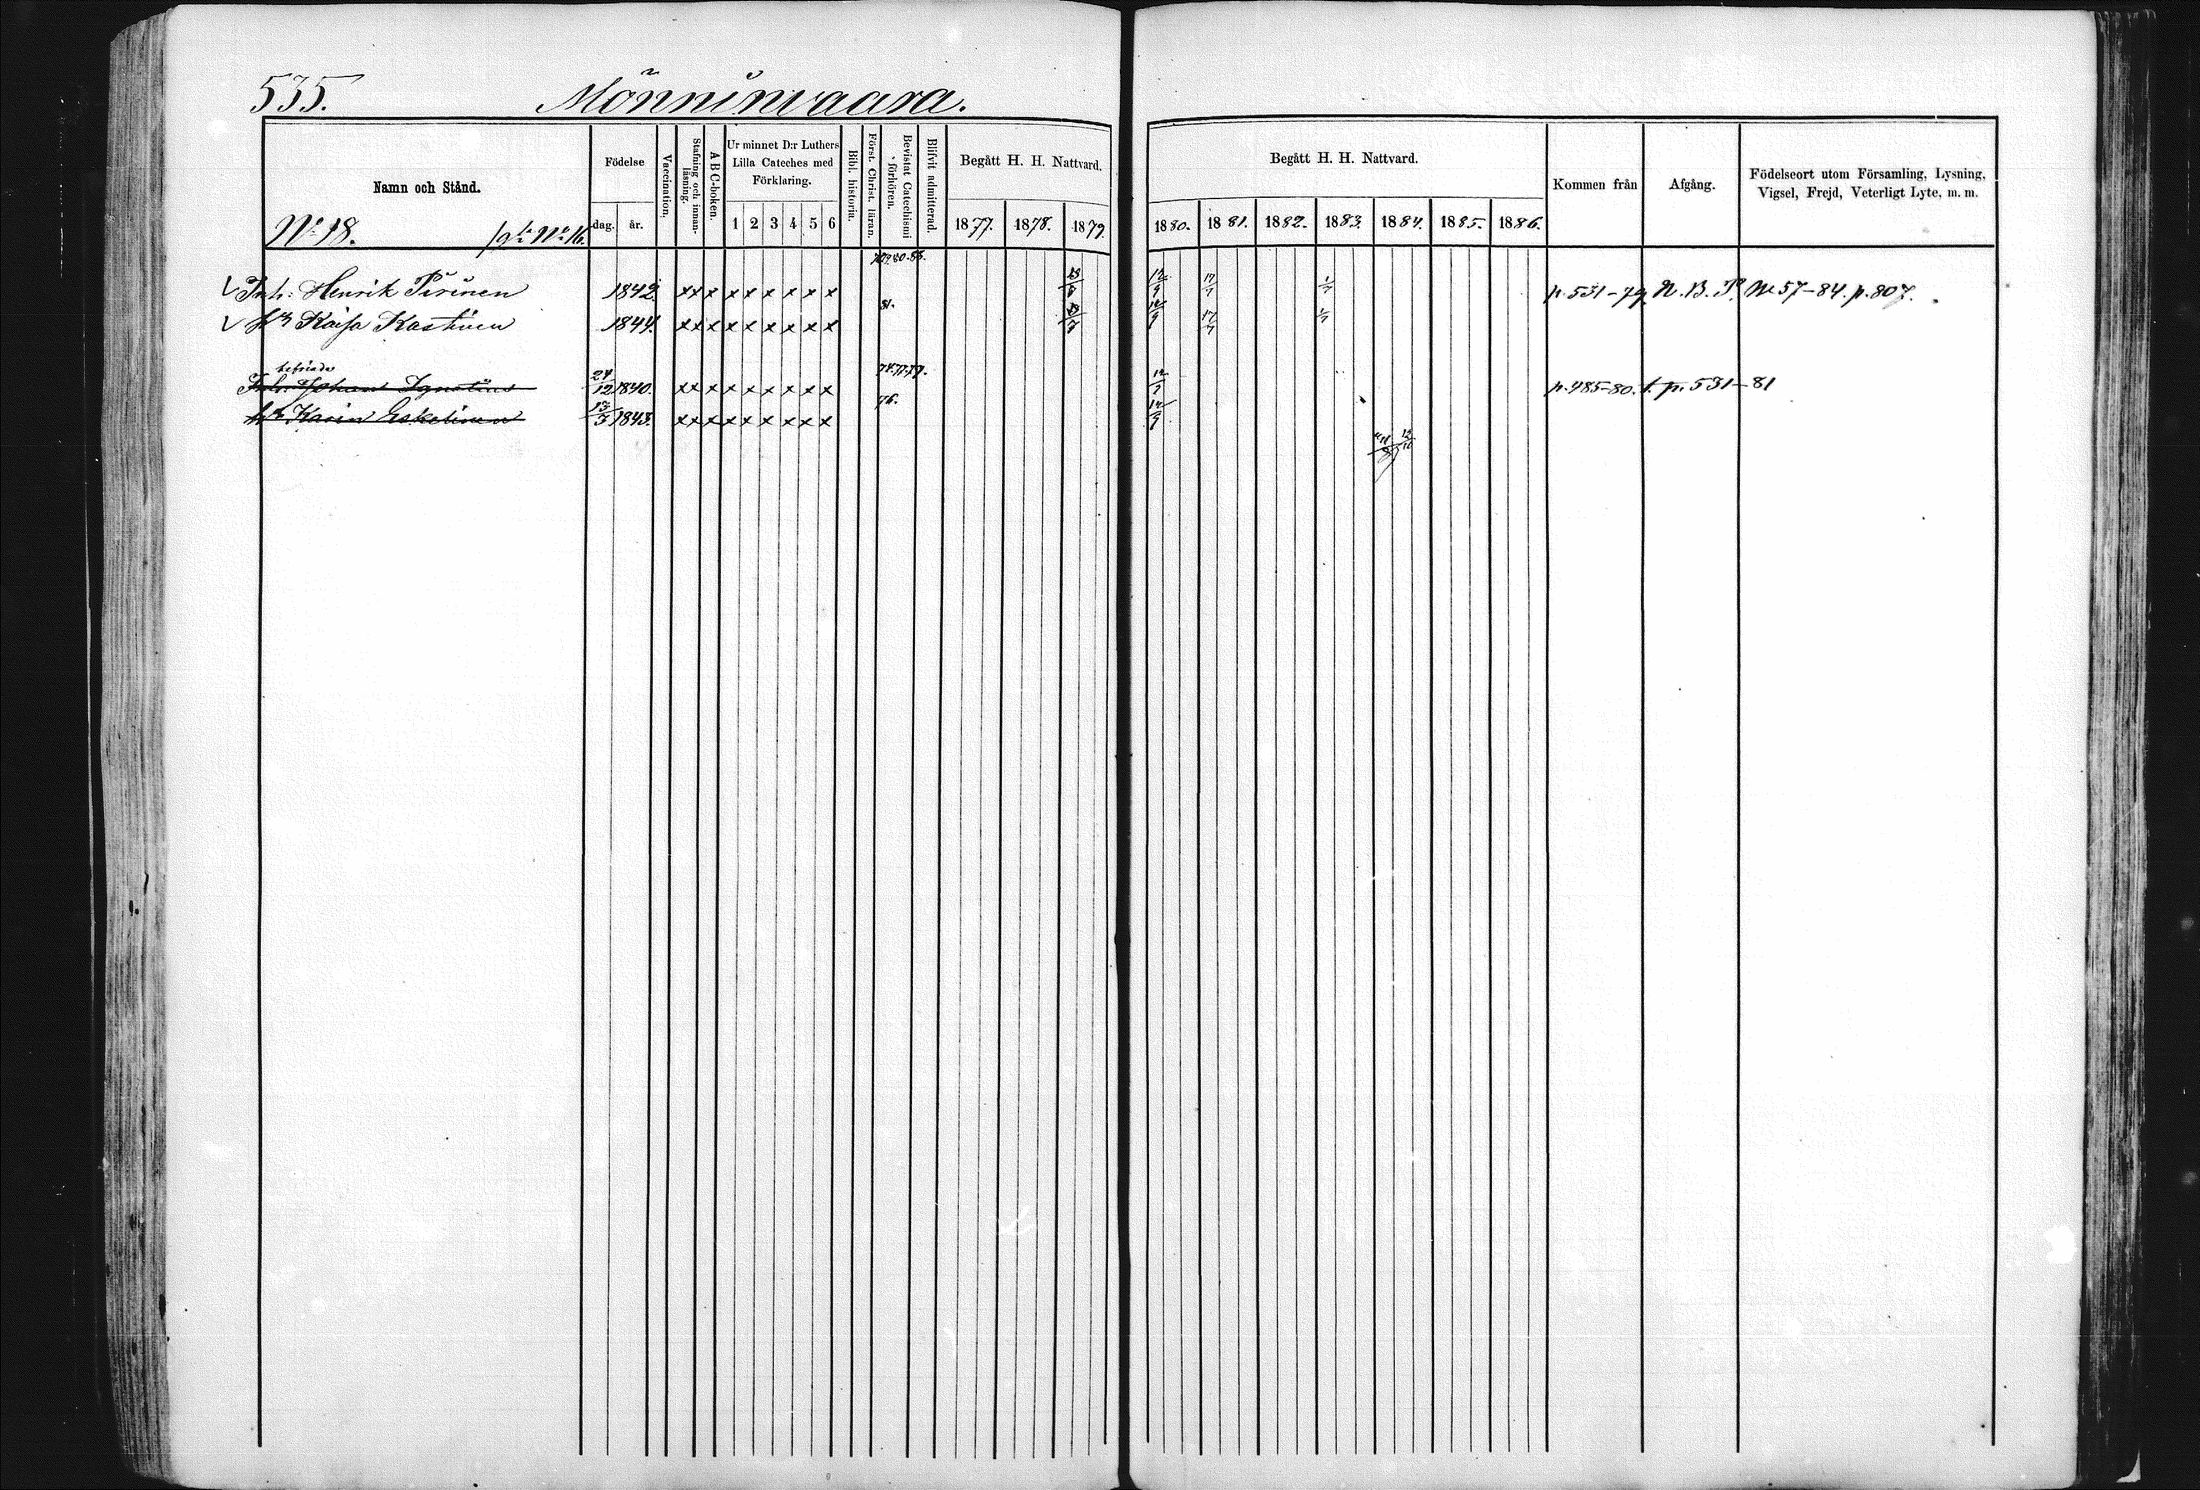 535.
Mönninvaara.
Namn och Stånd.
Födelse
dag.
år.
Vaccination.
Stafning och innan-
läsning.
A B C-boken.
Ur minnet D:r Luthers
Lilla Cateches med
Förklaring.
1 2 3 4 5 6
Bibl. historia.
Först. Christ. läran.
Bevistat Catechismi
förhören.
Blifvit admitterad.
Begått H. H. Nattvard.
1877. 1878. 1879.
Begått H. H. Nattvard.
1880. 1881. 1882. 1883. 1884. 1885. 1886.
Kommen från
Afgång.
Födelseort utom Församling, Lysning,
Vigsel, Frejd, Veterligt Lyte, m. m.
No 18. No 16.
Inh: Henrik Pirinen 1842. x x x x x x x x x p. 531-79 N. B. No 57-84. p. 807.
81.
Kaisa Kastinen 1844. x x x x x x x x x
Inh: Johan Ignatius 24/12 1840. x x x x x x x x x 12/9 p. 485-80. t. p. 531-81
76.
Karin Eskelinen 1843. x x x x x x x x x 12/9